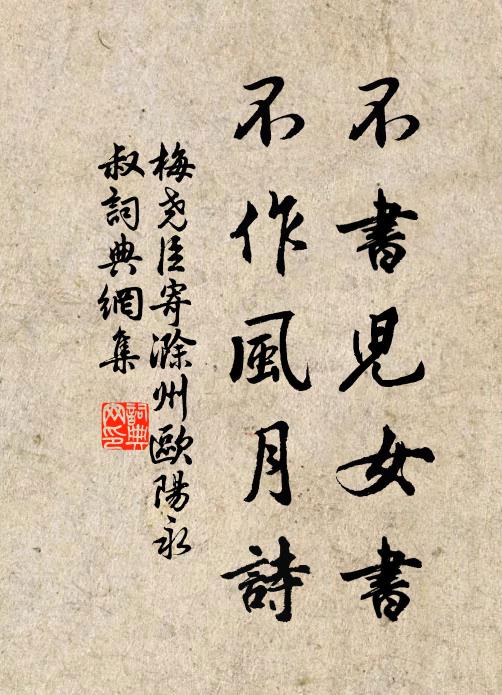 不書兒女書
不作風月詩
梅尧臣寄滁州歐陽永
叔詞典網集
詞典
网印